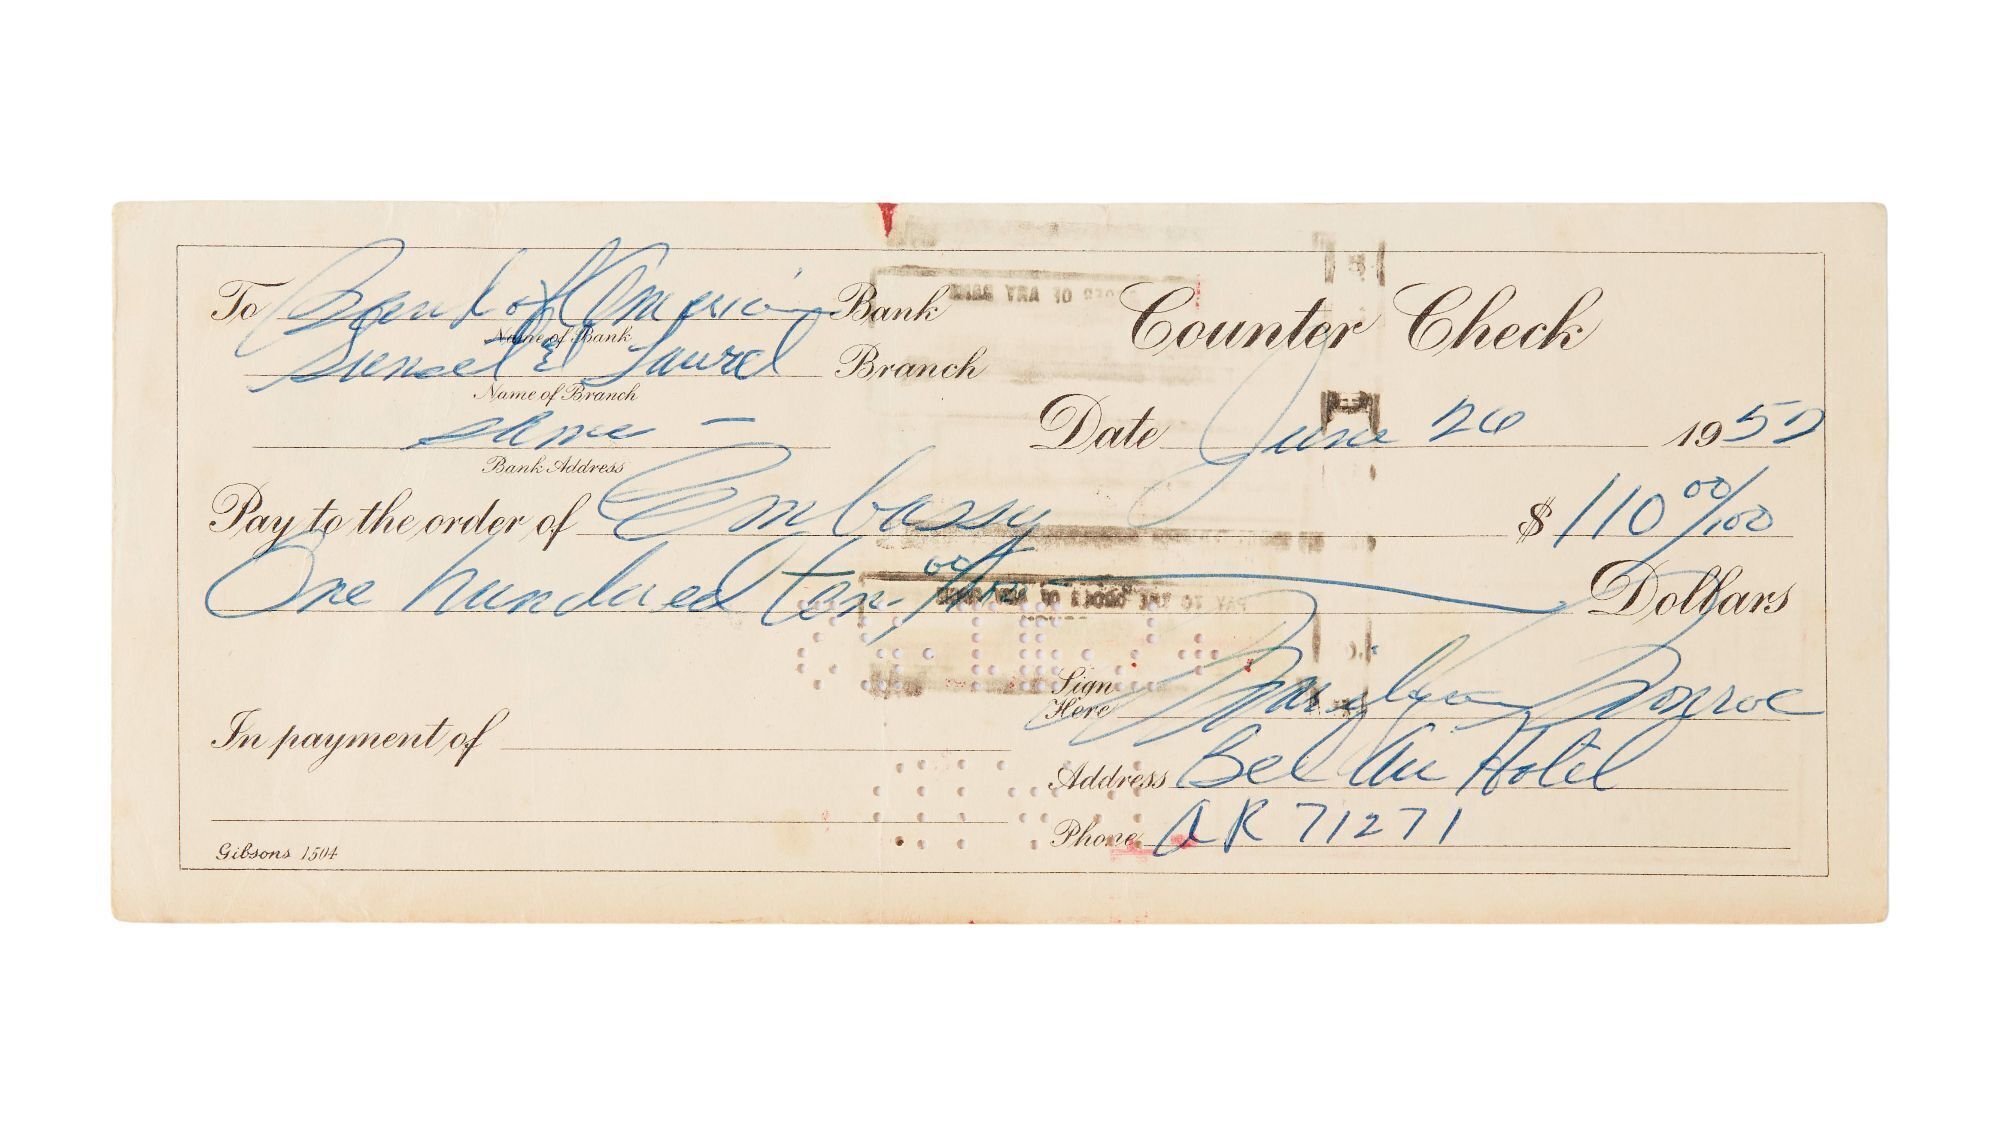 To Bank of America Bank
Name of Bank
Sunset & Laurel Branch
Name of Branch
Counter Check
same -
Bank Address
Date June 26 1952
Pay to the order of Embassy $ 110 00/100
One hundred ten 00/100 Dollars
PAY TO THE ORDER OF ANY BANK
Sign Here Marilyn Monroe
In payment of
Address Bel Air Hotel
Phone AR 71271
Gibsons 1504